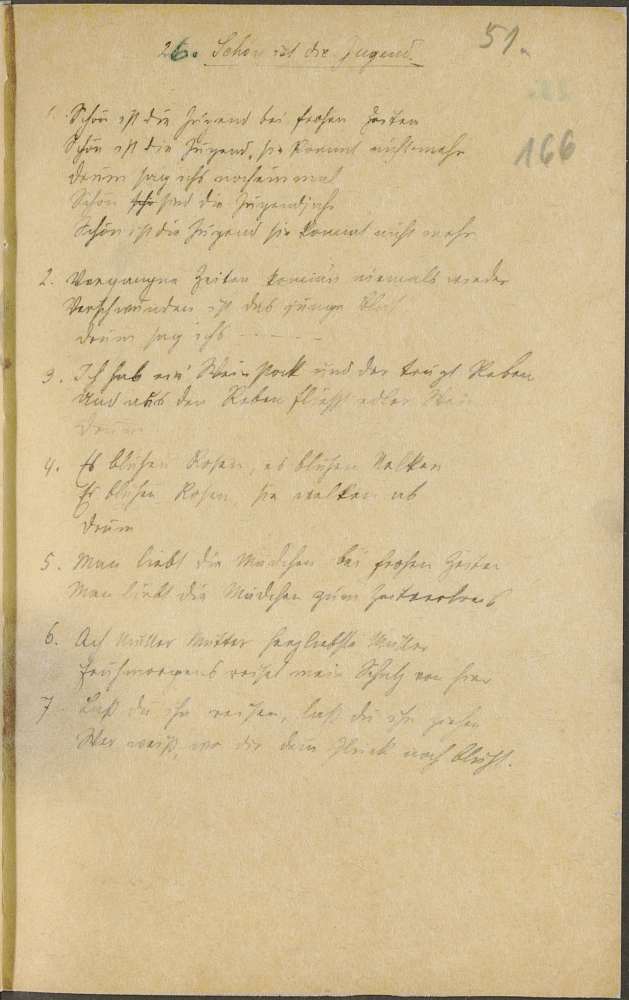 26. Schön ist die Jugend.
51.
166
1. Schön ist die Jugend bei frohen Zeiten
Schön ist die Jugend, sie kommt nicht mehr
Drum sag ichs noch einmal
Schön sind die Jugendjahr
Schön ist die Jugend sie kommt nicht mehr
2. Vergangne Zeiten kommen niemals wieder
Verschwunden ist das junge Blut
Drum sag ichs
3. Ich hab ein Weinstock und der trägt Reben
Und aus den Reben fließt edler Wein
Drum
4. Es blühen Rosen, es blühen Nelken
Es blühen Rosen, sie welken ab
Drum
5. Man liebt die Mädchen bei frohen Zeiten
Man liebt die Mädchen zum Zeitvertreib
6. Ach Mutter Mutter herzliebste Mutter
Frühmorgens reiset mein Schatz von hier
7. Laß du ihn reisen, laß du ihn gehen
Wer weiß, wo dir dein Glück noch blüht.